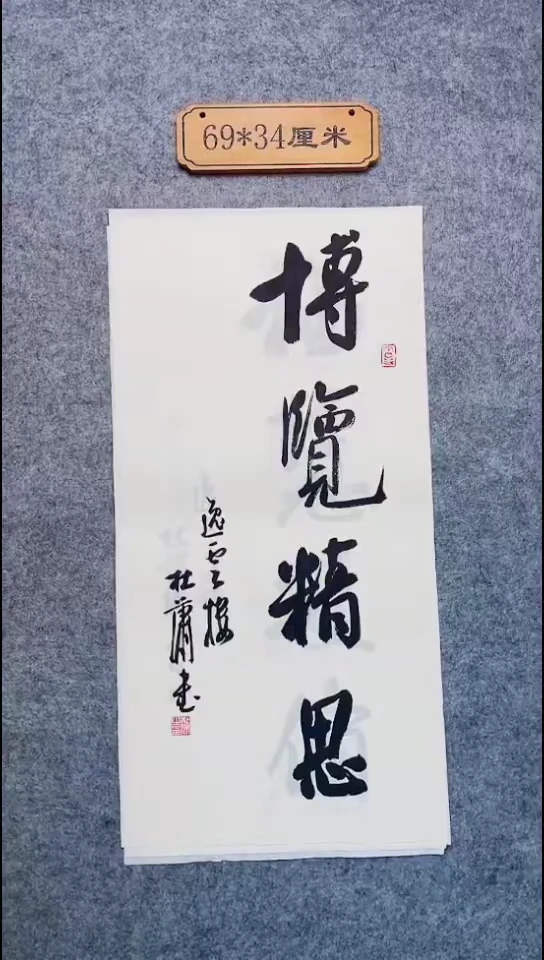 69*34厘米
博覽精思
逸雲樓
杜蕭書